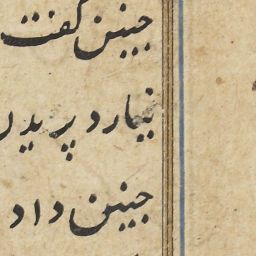 چنین گفت
نیارد پرید
چنین داد